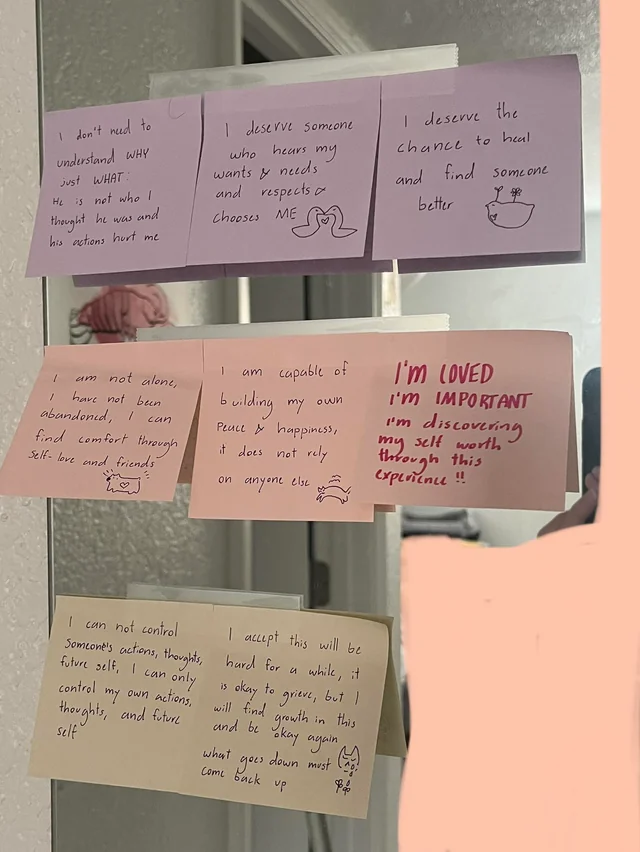 I don't need to
understand WHY
just WHAT:
He is not who I
thought he was and
his actions hurt me
I deserve someone
who hears my
wants & needs
and respects &
chooses ME
I deserve the
chance to heal
and find someone
better
I am not alone,
I have not been
abandoned, I can
find comfort through
self-love and friends
I am capable of
building my own
peace & happiness,
it does not rely
on anyone else
I'M LOVED
I'M IMPORTANT
I'm discovering
my self worth
through this
experience !!
I can not control
someone's actions, thoughts,
future self, I can only
control my own actions,
thoughts, and future
self
I accept this will be
hard for a while, it
is okay to grieve, but I
will find growth in this
and be okay again
what goes down must
come back up